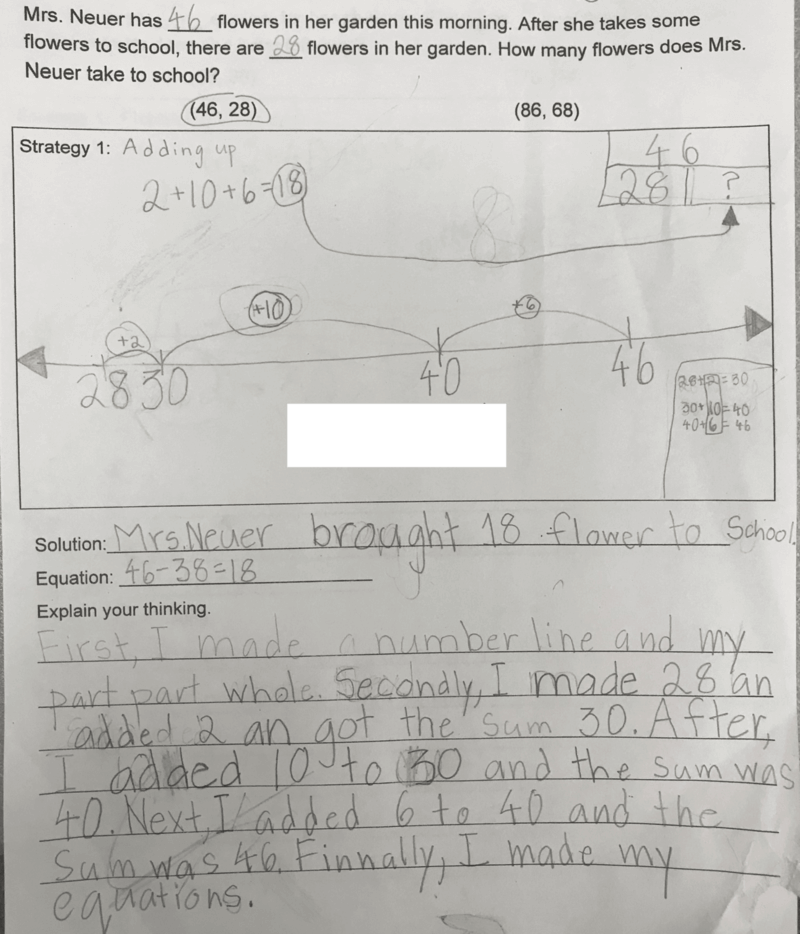 Mrs. Neuer has 46 flowers in her garden this morning. After she takes some
flowers to school, there are 28 flowers in her garden. How many flowers does Mrs.
Neuer take to school?
(46, 28) (86, 68)
Strategy 1: Adding up
46
2+10+6=18
28 ?
8
+10
+6
+2
28 30 40 46
28+2=30
30+10=40
40+6=46
Solution: Mrs.Neuer brought 18 flower to School.
Equation: 46-38=18
Explain your thinking.
First, I made a number line and my
part part whole. Secondly, I made 28 an
added 2 an got the sum 30. After,
I added 10 to 30 and the sum was
40. Next, I added 6 to 40 and the
Sum was 46. Finnally, I made my
equations.